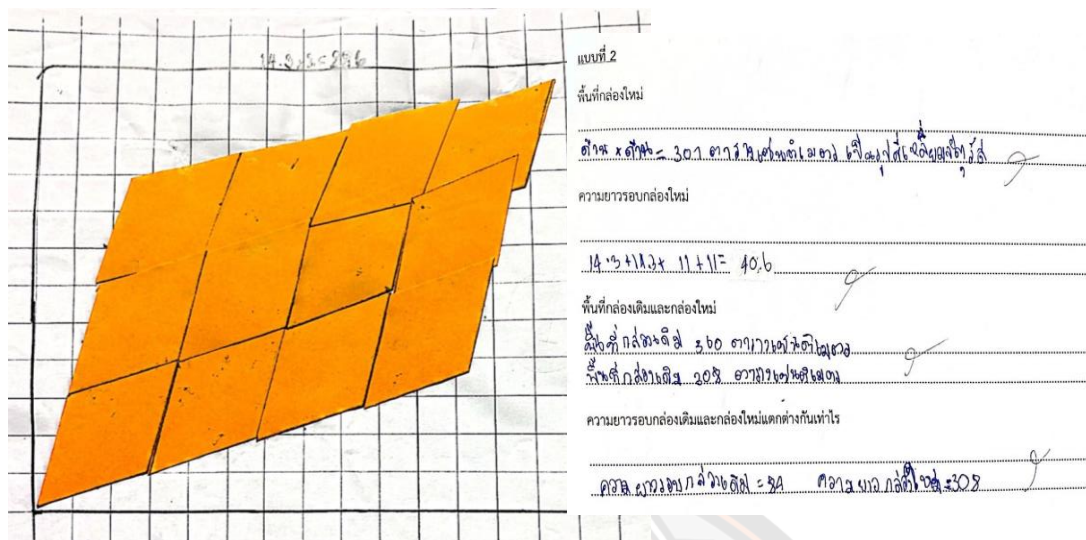 แบบที่ 2
พื้นที่กล่องใหม่
ด้าน × ด้าน = 301 ตารางเซนติเมตร เป็นรูปสี่เหลี่ยมจัตุรัส
ความยาวรอบกล่องใหม่
14.3+14.3+ 11+11= 40.6
พื้นที่กล่องเดิมและกล่องใหม่
พื้นที่กล่องเดิม 360 ตารางเซนติเมตร
พื้นที่กล่องเดิม 208 ตารางเซนติเมตร
ความยาวรอบกล่องเดิมและกล่องใหม่แตกต่างกันเท่าไร
ความยาวรอบกล่องเดิม = 84 ความยาวกล่องใหม่ =308